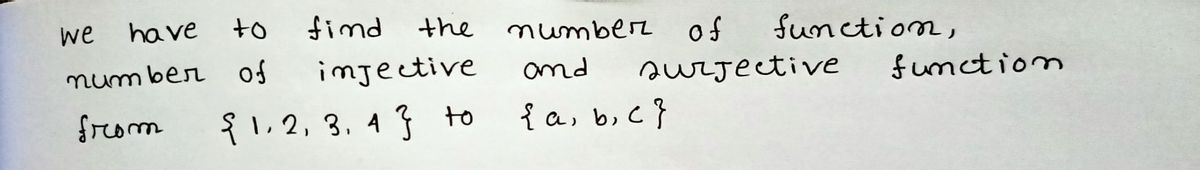 we have to find the number of function,
number of injective and surjective function
from {1, 2, 3, 4} to {a, b, c}